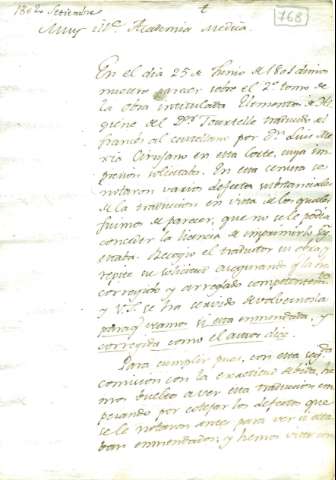 1802 Setiembre
768
Muy Ill.e Academia Medica.
En el dia 25 de Junio de 1801 dimos
nuestro parecer sobre el 2.º tomo de
la obra intitulada Elementos de Hi-
giene del D.or Tourtelle traducida del
francés al castellano por D.n Luis Ma-
ria Cerusano en esta Corte, cuya im-
presion solicitaba. En esta censura se
notaron varios defectos substanciales
de la traduccion en vista de los quales
fuimos de parecer, que no se le podia
conceder la licencia de imprimirlo
Recogio el traductor su obra, y
repite su solicitud asegurando
corregido y arreglado competentem.te
y V.S. se ha servido devolvernosla
para q.e veamos si esta enmendada, y
corregida como el autor dice.
Para cumplir pues, con esta
comision con la exactitud debida, he-
mos buelto a ver esta traduccion em-
pezando por cotejar los defectos que
se le notaron antes para ver si esta-
ban enmendados, y hemos visto con